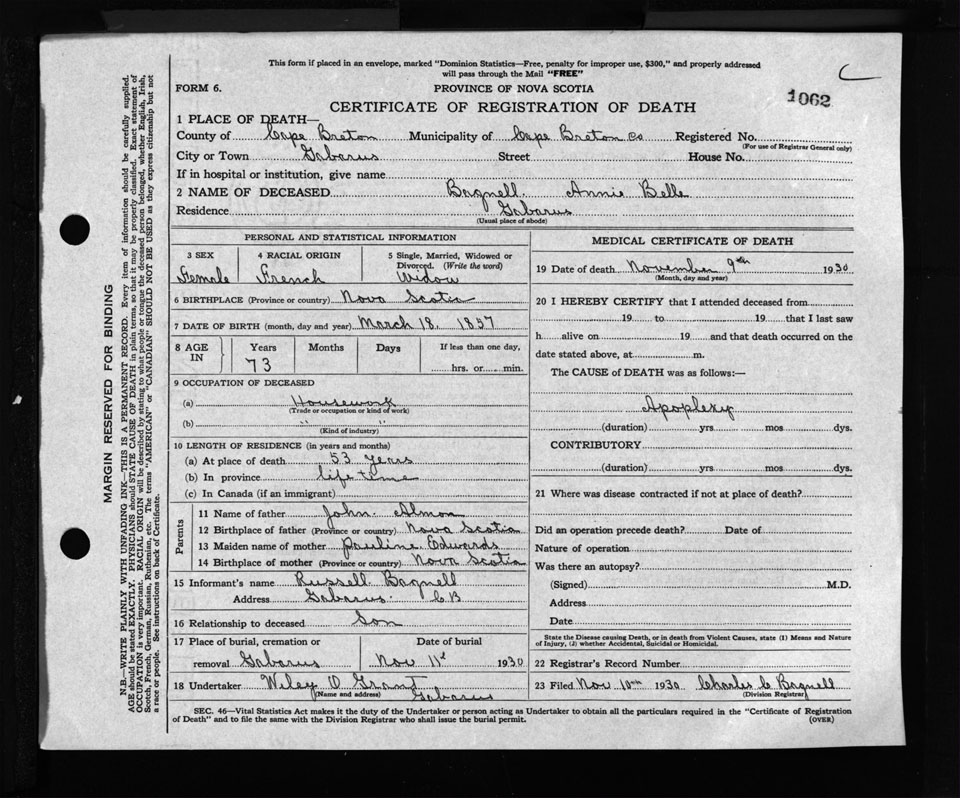 This form if placed in an envelope, marked "Dominion Statistics—Free, penalty for improper use, $300," and properly addressed
will pass through the Mail "FREE"
FORM 6.
PROVINCE OF NOVA SCOTIA
1062
CERTIFICATE OF REGISTRATION OF DEATH
1 PLACE OF DEATH—
County of Cape Breton Municipality of Cape Breton Co Registered No.
(For use of Registrar General only)
City or Town Gabarus Street House No.
If in hospital or institution, give name
2 NAME OF DECEASED Bagnell Annie Belle
Residence Gabarus
(Usual place of abode)
PERSONAL AND STATISTICAL INFORMATION
3 SEX Female
4 RACIAL ORIGIN French
5 Single, Married, Widowed or Divorced. (Write the word) Widow
6 BIRTHPLACE (Province or country) Nova Scotia
7 DATE OF BIRTH (month, day and year) March 18, 1857
8 AGE IN Years Months Days If less than one day,
73 hrs. or min.
9 OCCUPATION OF DECEASED
(a) Housework
(Trade or occupation or kind of work)
(b) " "
(Kind of industry)
10 LENGTH OF RESIDENCE (in years and months)
(a) At place of death 53 years
(b) In province life time
(c) In Canada (if an immigrant)
Parents
11 Name of father John Almon
12 Birthplace of father (Province or country) Nova Scotia
13 Maiden name of mother Pauline Edwards
14 Birthplace of mother (Province or country) Nova Scotia
15 Informant's name Russell Bagnell
Address Gabarus C B
16 Relationship to deceased Son
17 Place of burial, cremation or removal Gabarus
Date of burial Nov 11st 1930
18 Undertaker Wiley O Grant
(Name and address) Gabarus
MEDICAL CERTIFICATE OF DEATH
19 Date of death November 9th 1930
(Month, day and year)
20 I HEREBY CERTIFY that I attended deceased from
19 to 19 that I last saw
h alive on 19 and that death occurred on the
date stated above, at m.
The CAUSE of DEATH was as follows:—
Apoplexy
(duration) yrs mos dys.
CONTRIBUTORY
(duration) yrs. mos dys.
21 Where was disease contracted if not at place of death?
Did an operation precede death? Date of
Nature of operation
Was there an autopsy?
(Signed) M.D.
Address
Date
State the Disease causing Death, or in death from Violent Causes, state (1) Means and Nature
of Injury, (2) whether Accidental, Suicidal or Homicidal.
22 Registrar's Record Number
23 Filed Nov. 10th 1930 Charles C Bagnell
(Division Registrar)
SEC. 46—Vital Statistics Act makes it the duty of the Undertaker or person acting as Undertaker to obtain all the particulars required in the "Certificate of Registration
of Death" and to file the same with the Division Registrar who shall issue the burial permit.
(OVER)
MARGIN RESERVED FOR BINDING
N.B.—WRITE PLAINLY WITH UNFADING INK—THIS IS A PERMANENT RECORD. Every item of information should be carefully supplied.
AGE should be stated EXACTLY. PHYSICIANS should STATE CAUSE OF DEATH in plain terms, so that it may be properly classified. Exact statement of
OCCUPATION is very important. RACIAL ORIGIN will be described by stating to what people or tongue the deceased person belonged, whether English, Irish,
Scotch, French, German, Russian, Ruthenian, etc. The terms "AMERICAN" or "CANADIAN" SHOULD NOT BE USED as they express citizenship but not
a race or people. See instructions on back of Certificate.